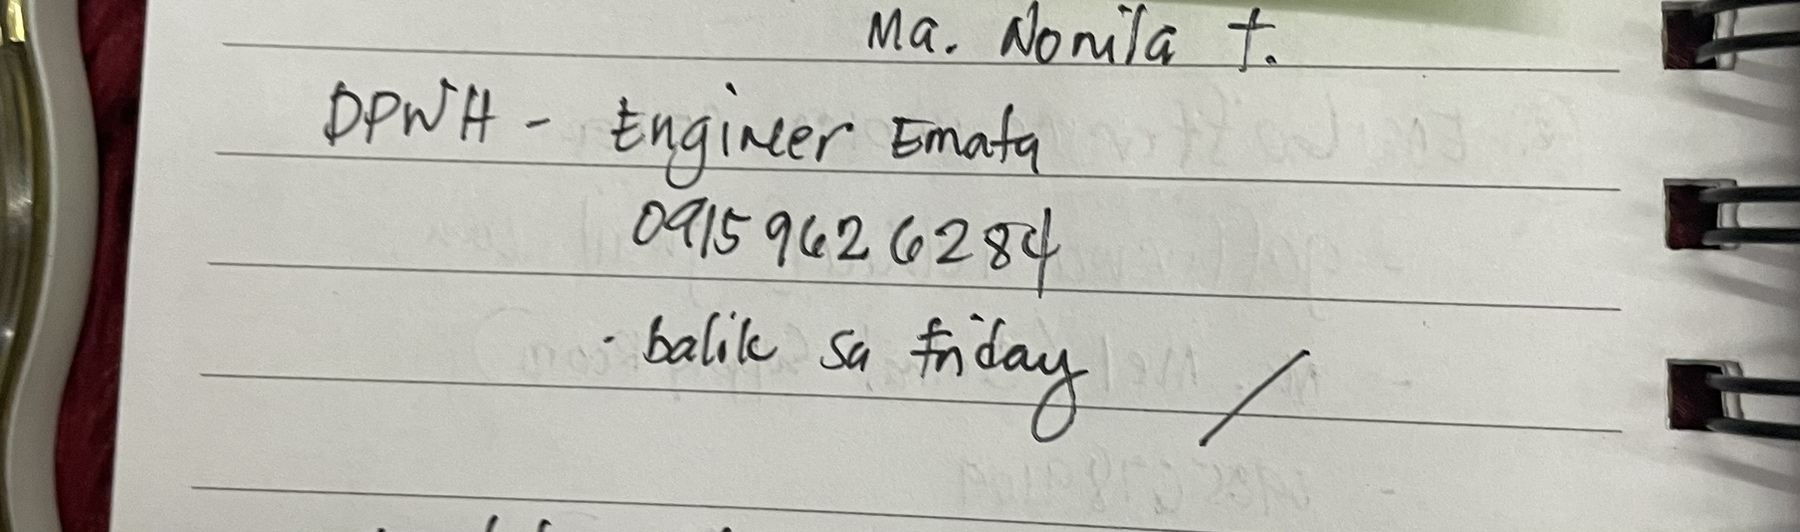 Ma. Nonila T.
DPWH - Engineer Emata
0915 962 6284
- balik sa friday /